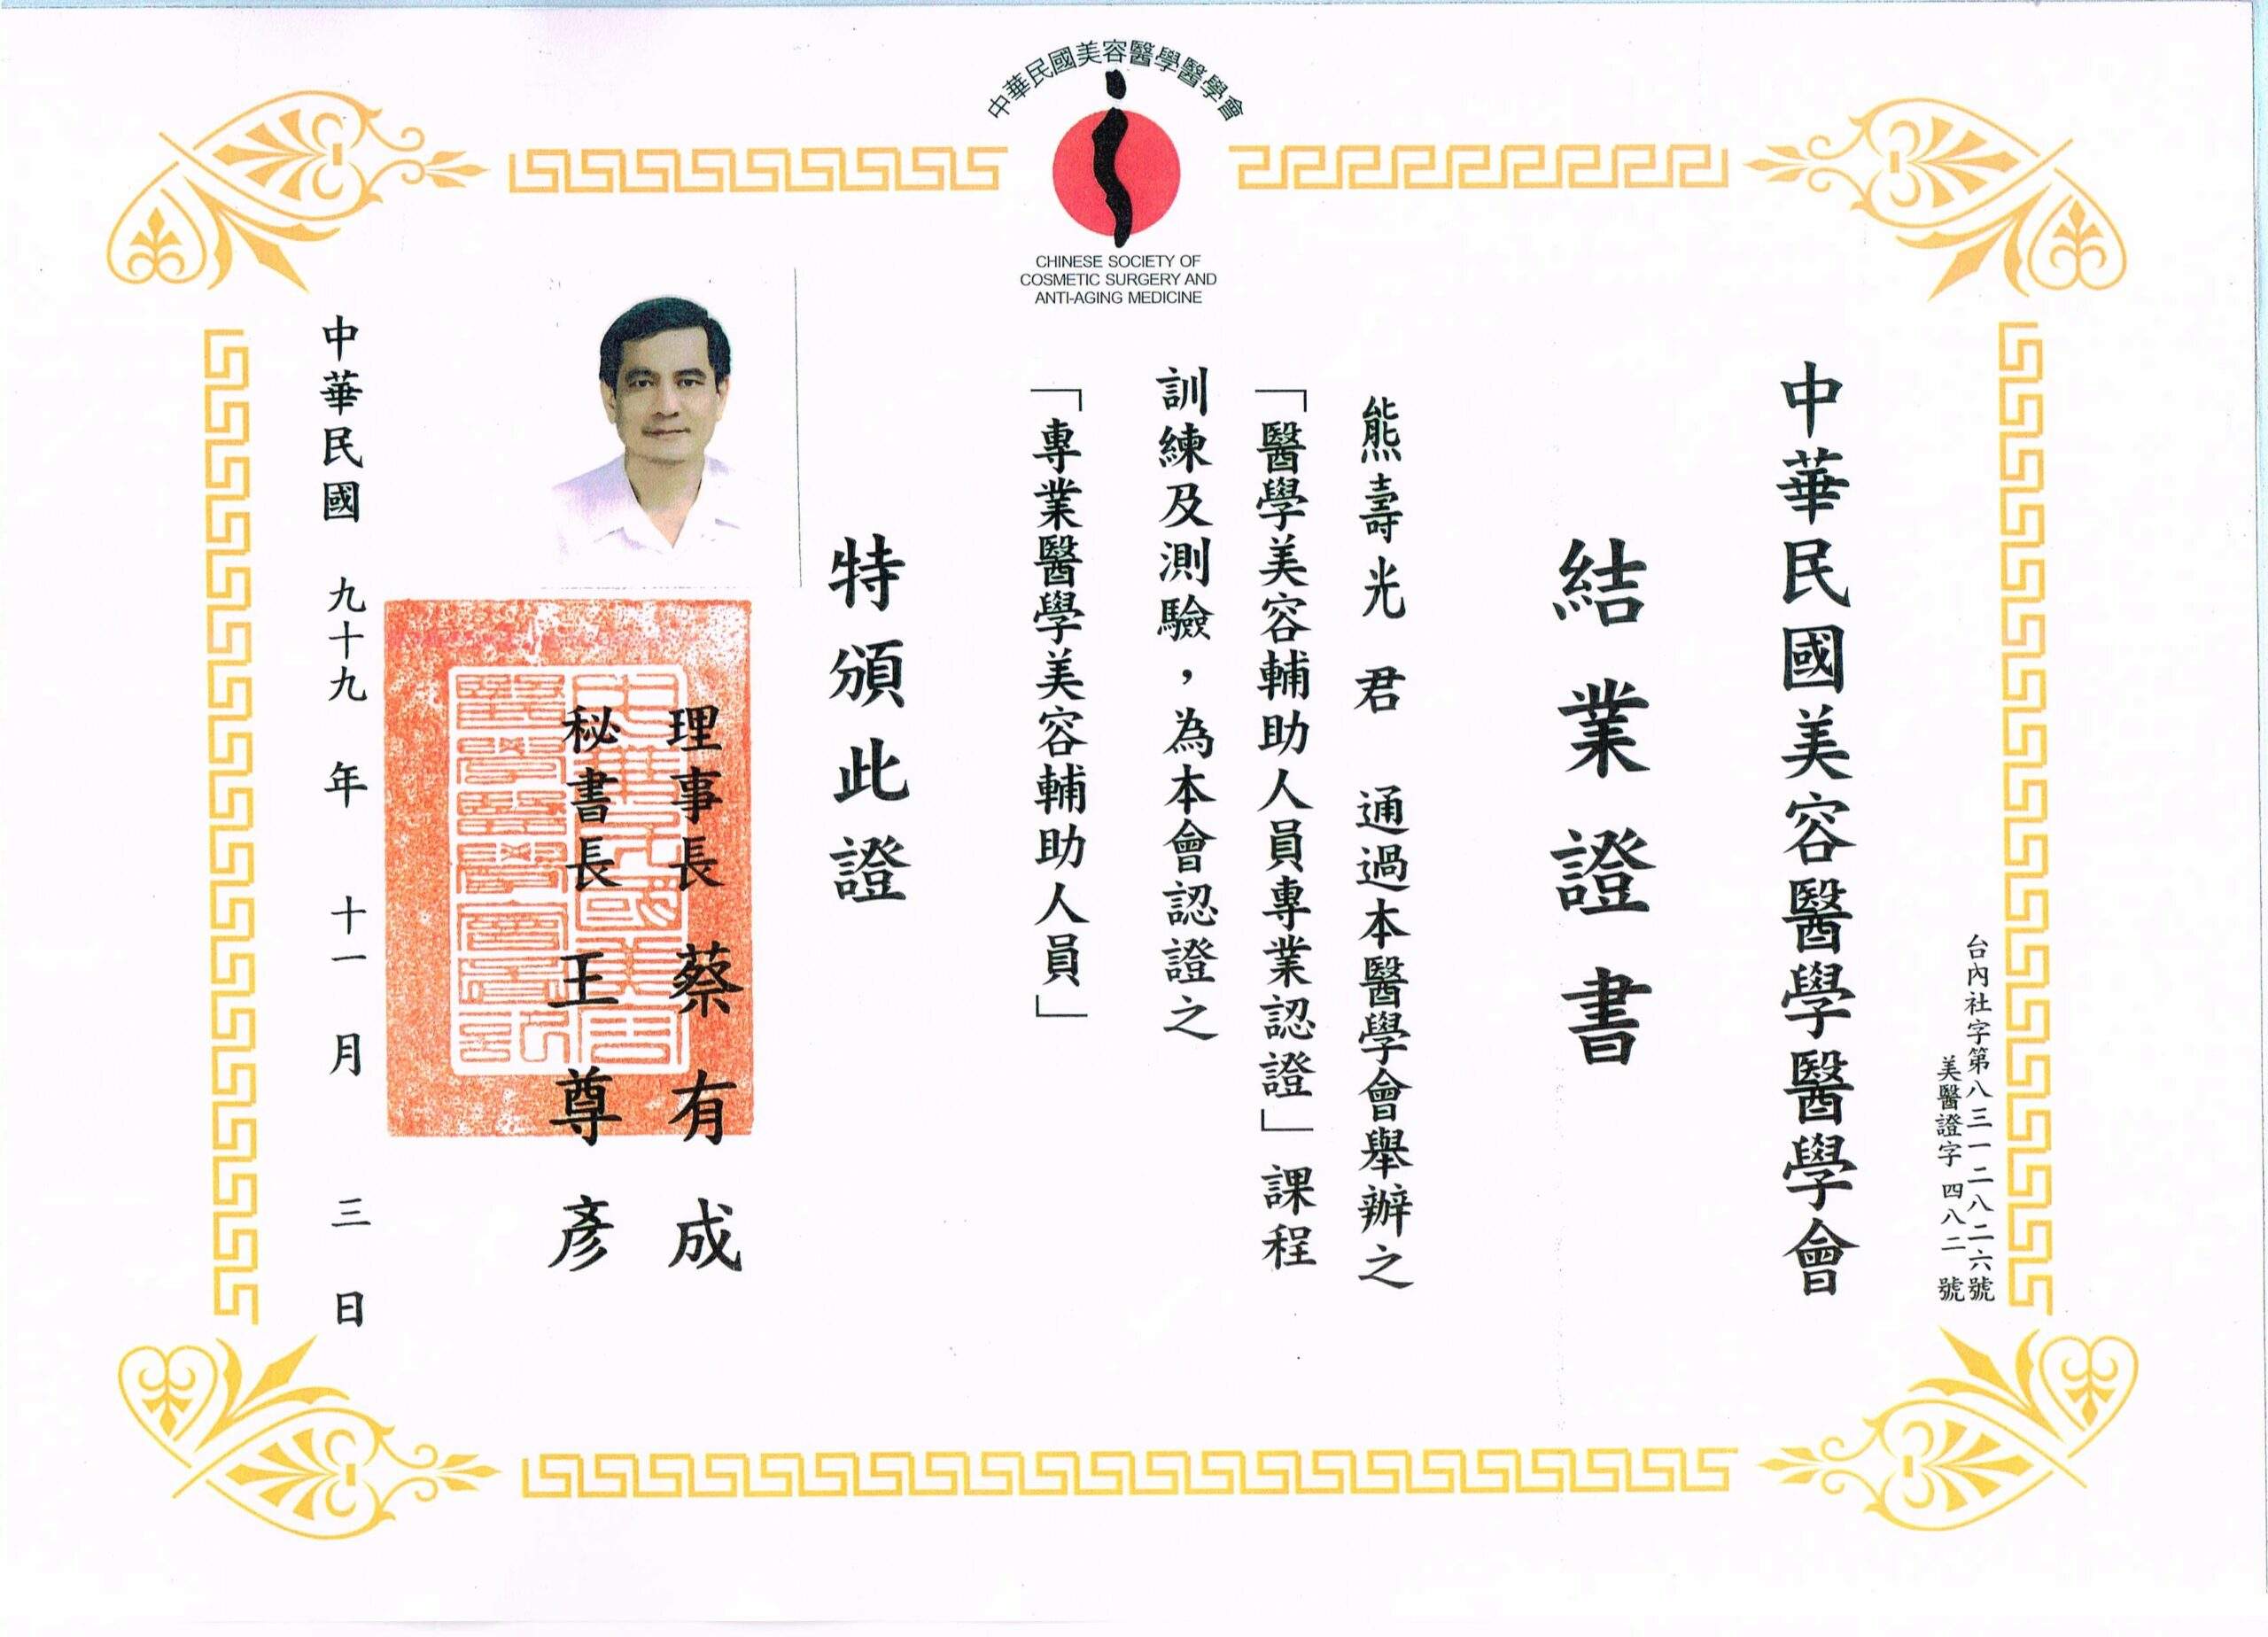 中華民國美容醫學醫學會
CHINESE SOCIETY OF
COSMETIC SURGERY AND
ANTI-AGING MEDICINE
台內社字第八三一二八二六號
美醫證字四八二號
中華民國美容醫學醫學會
結業證書
熊壽光 君 通過本醫學會舉辦之
「醫學美容輔助人員專業認證」課程
訓練及測驗，為本會認證之
「專業醫學美容輔助人員」
特頒此證
理事長 蔡有成
秘書長 王尊彥
中華民國 九十九 年 十一 月 三 日